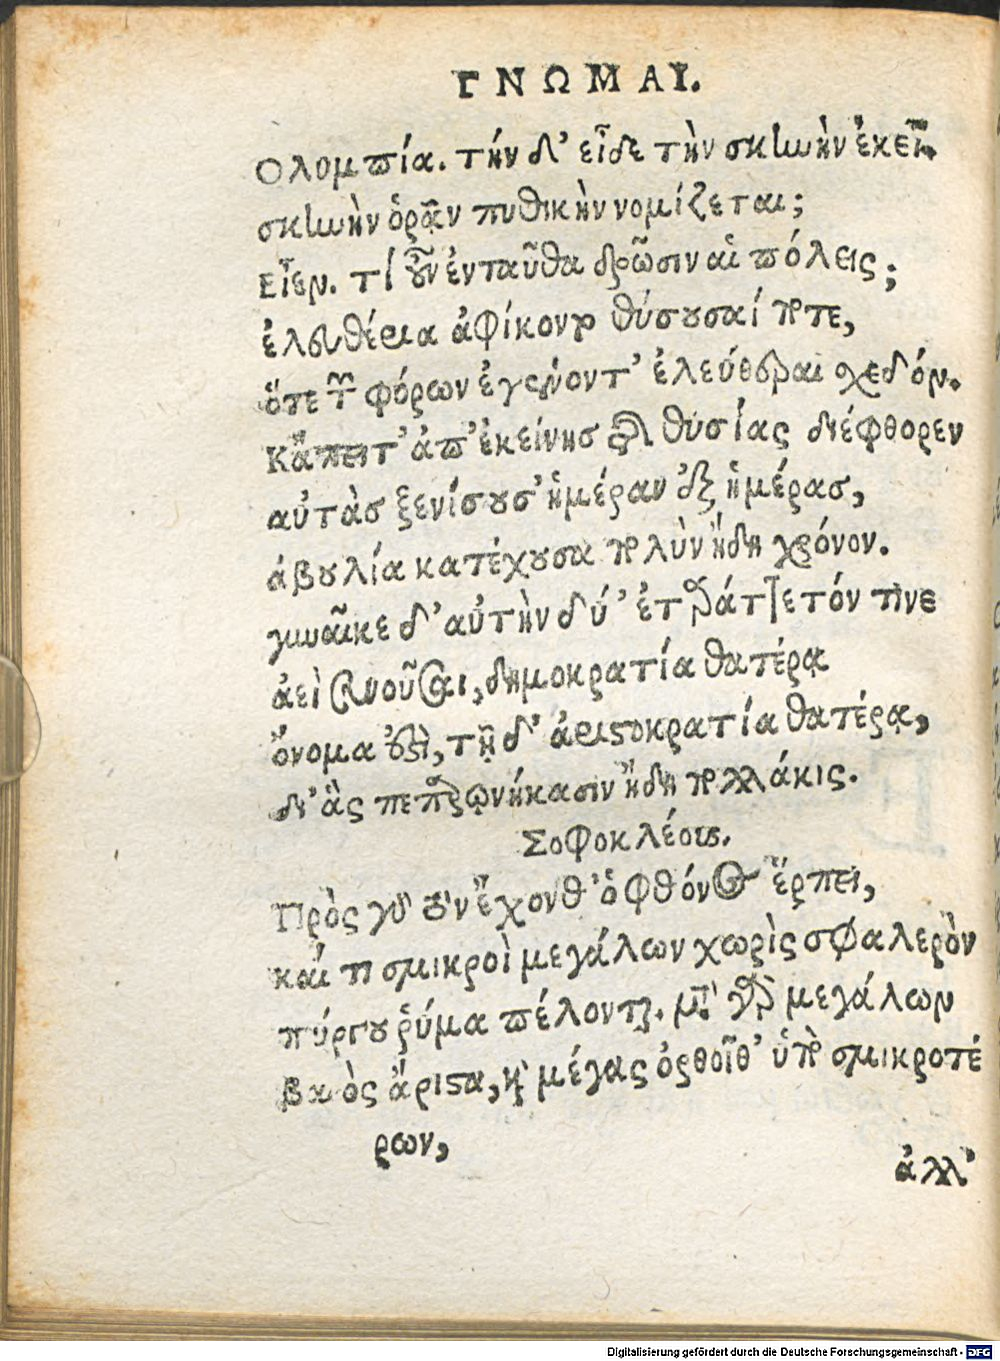 ΓΝΩΜΑΙ.
Ολυμπία. τήν δ' εἶδε τὴν σκηνὴν ἐκεῖ
σκηνὴν ὁρᾶν πυθικὴν νομίζεται;
Εἶεν. τί οὖν ἐνταῦθα δρῶσιν αἱ πόλεις;
ἐλευθέρια ἀφίκοντο θύσουσαί ποτε,
ὅτε τῶν φόρων ἐγένοντ' ἐλεύθεραι σχεδόν.
Κἄπειτ' ἀπ' ἐκείνης τῆς θυσίας διέφθορεν
αὐτὰς ξενίζουσ' ἡμέραν ἐξ ἡμέρας,
ἀβουλία κατέχουσα πολὺν ἤδη χρόνον.
γυναῖκε δ' αὐτὴν δύ' ἐταράττετόν τινε
ἀεὶ συνοῦσαι, δημοκρατία θατέρᾳ
ὄνομα ἐστὶ, τῇ δ' ἀριστοκρατία θατέρᾳ,
δι' ἃς πεπαρῳνήκασιν ἤδη πολλάκις.
Σοφοκλέους.
Πρὸς γὸ τὸν ἔχονθ' ὁ φθόνος ἕρπει,
καί τι σμικροὶ μεγάλων χωρὶς σφαλερὸν
πύργου ῥύμα πέλονται. μετὰ γὸ μεγάλων
βαιὸς ἄριστα, καὶ μέγας ὀρθοῖθ' ὑπὸ σμικροτέ
ρων,
ἀλλ'
Digitalisierung gefördert durch die Deutsche Forschungsgemeinschaft - DFG